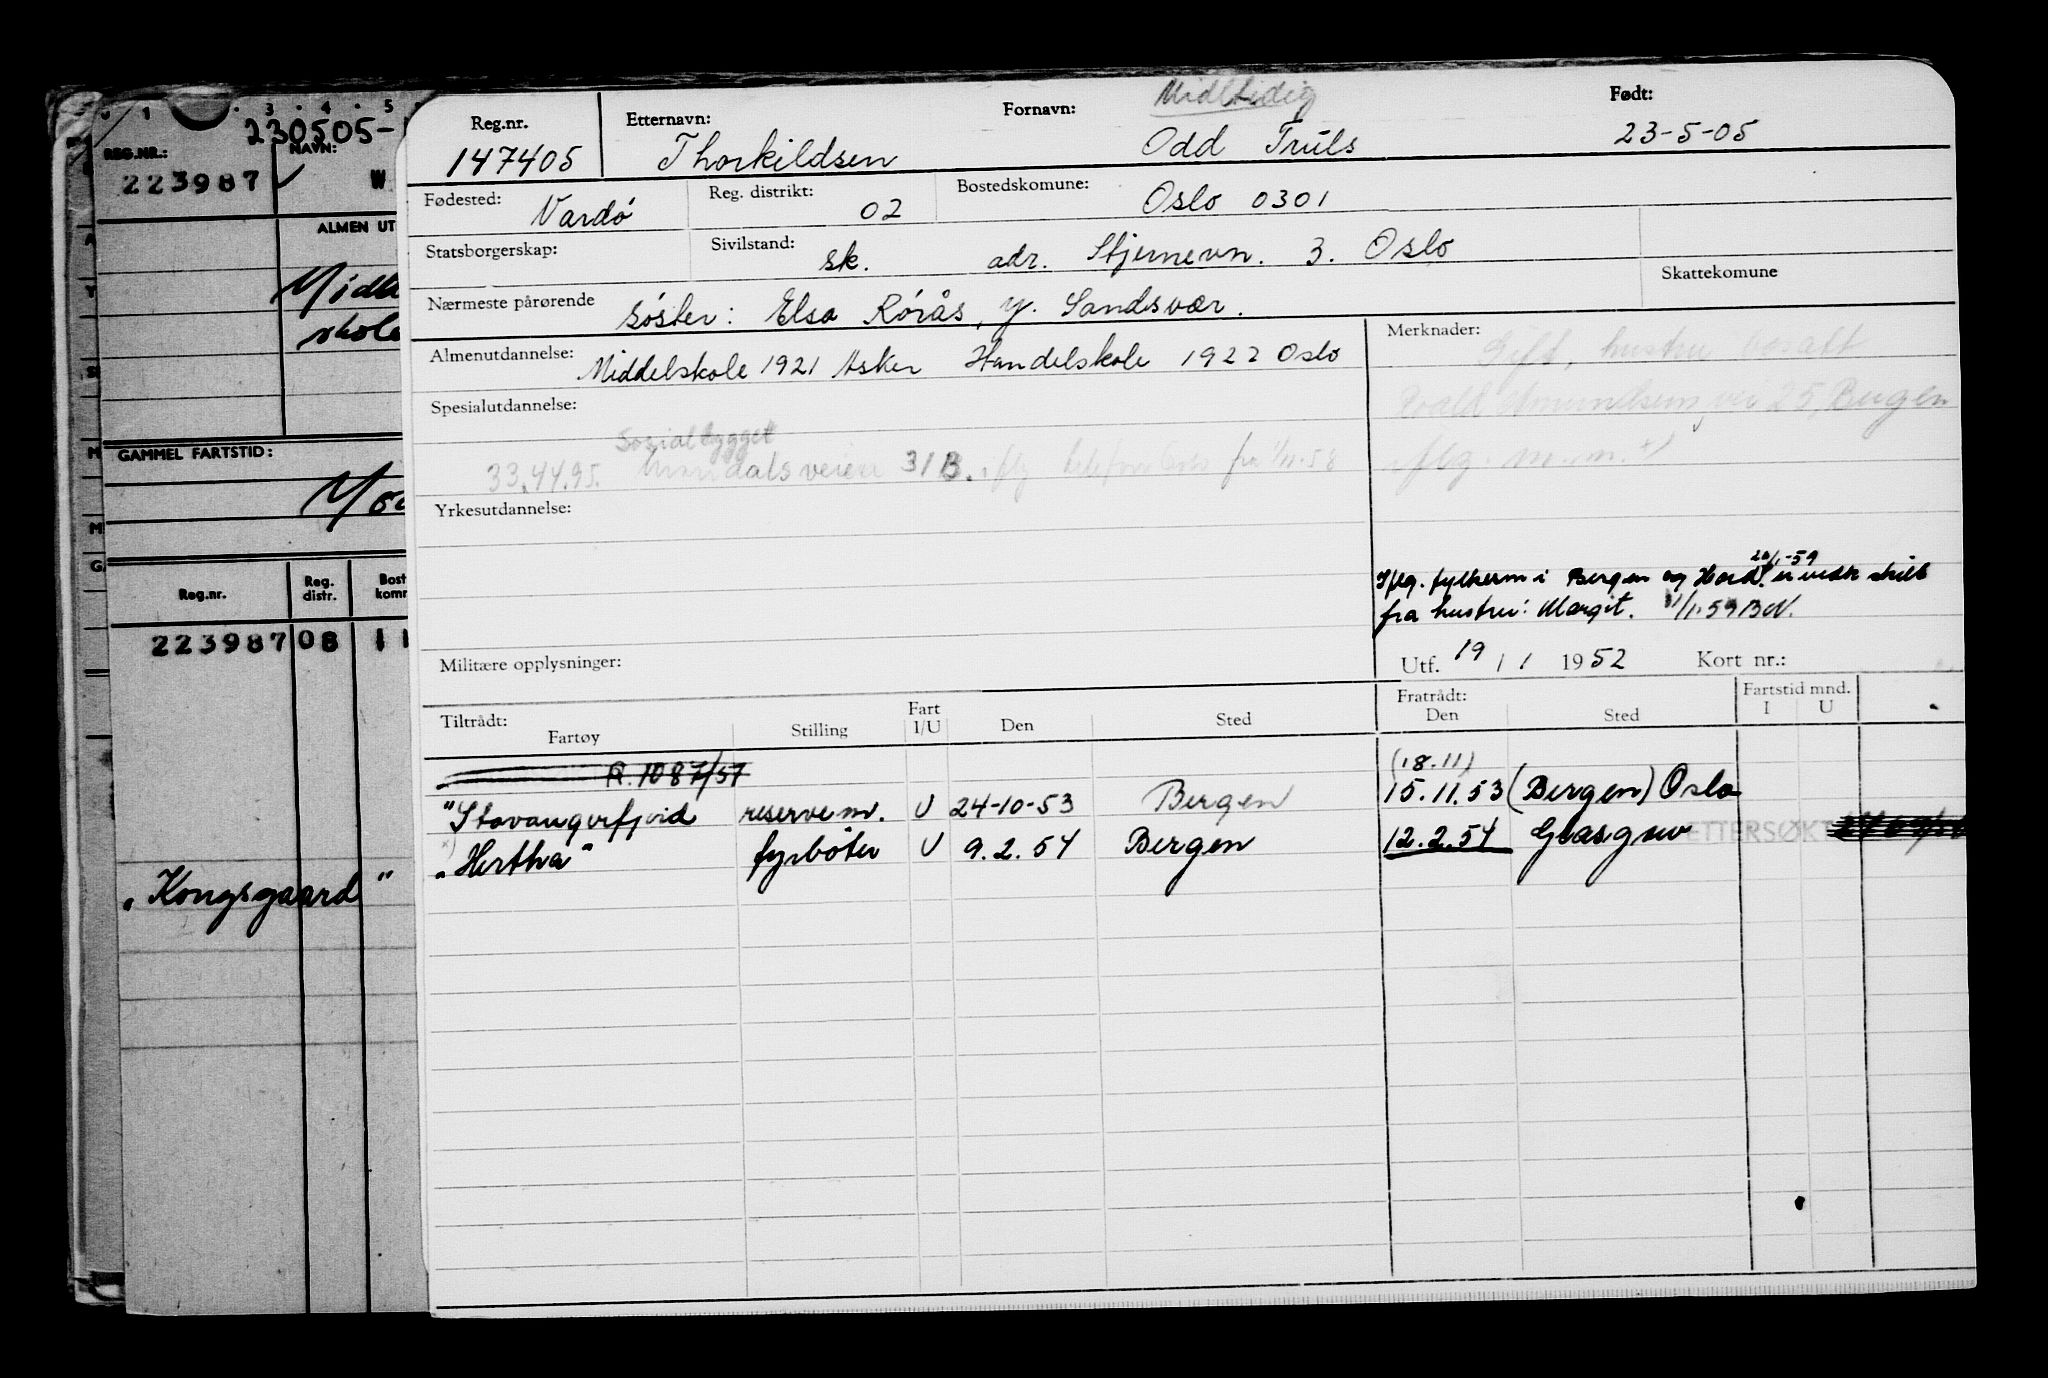 1 3 4 5
230505-
REG.NR.: NAVN:
223987 W
ALMEN UT
skole
GAMMEL FARTSTID:
Reg.nr. Reg. distr. Bost komm
223987 08 11
"Kongsgaard"
Midltidig
Reg.nr. Etternavn: Fornavn: Født:
147405 Thorkildsen Odd Truls 23-5-05
Fødested: Vardø Reg. distrikt: 02 Bostedskomune: Oslo 0301
Statsborgerskap: Sivilstand: sk. adr. Stjernevn. 3. Oslo
Skattekomune
Nærmeste pårørende søster: Elsa Rørås, Y. Sandsvær.
Almenutdannelse: Middelskole 1921 Asker Handelskole 1922 Oslo
Merknader: Gift, hustru bosatt
Roald Amundsens vei 25, Bergen
iflg. m.m. x)
Spesialutdannelse:
Sosialbygget
33.44.95. veien 31B. iflg telefon Oslo fra 1/11-58
Yrkesutdannelse:
20/1-59
Iflg. fylkerm i Bergen og Hord. er vedk skilt
fra hustru: Margit. 1/1.59 BN.
Militære opplysninger:
Utf. 19 / 1 1952 Kort nr.:
Tiltrådt: Fartøy Stilling Fart I/U Den Sted Fratrådt: Den Sted Fartstid mnd. I U
R. 1087/57
(18.11)
"Stavangerfjord reservem. U 24-10-53 Bergen 15.11.53 (Bergen) Oslo
x)
"Hertha" fyrbøter U 9.2.54 Bergen 12.2.54 Glasgow ETTERSØKT